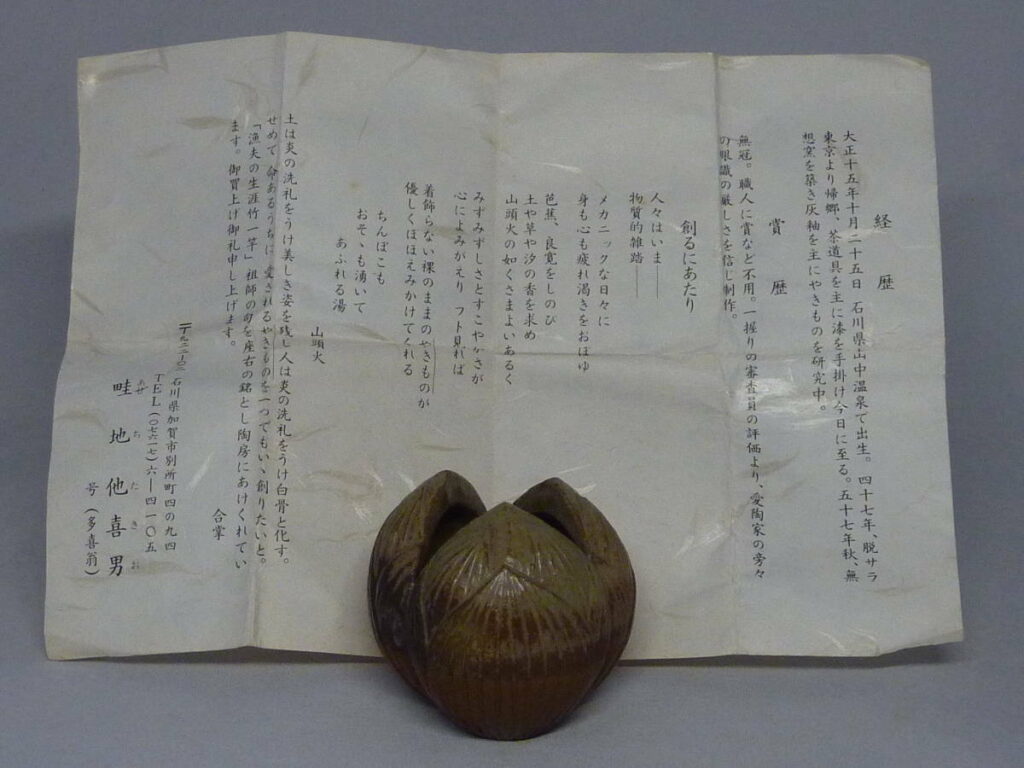 経歴
大正十五年十月二十五日 石川県山中温泉で出生。四十七年、脱サラ
東京より帰郷、茶道具を主に漆を手掛け今日に至る。五十七年秋、無
想窯を築き灰釉を主にやきものを研究中。
賞歴
無冠。職人に賞など不用。一握りの審査員の評価より、愛陶家の旁々
の眼識の厳しさを信じ制作。
創るにあたり
人々はいま――
物質的雑踏――
メカニックな日々に
身も心も疲れ渇きをおぼゆ
芭蕉、良寛をしのび
土や草や汐の香を求め
山頭火の如くさまよいあるく
みずみずしさとすこやかさが
心によみがえり フト見れば
着飾らない裸のままのやきものが
優しくほほえみかけてくれる
ちんぽこも
おそゝも湧いて
あふれる湯
山頭火
土は炎の洗礼をうけ美しき姿を残し人は炎の洗礼をうけ白骨と化す。
せめて 命あるうちに 愛されるやきものを一つでもいゝ創りたいと。
「漁夫の生涯竹一竿」祖師の句を座右の銘とし陶房にあけくれてい
ます。御買上げ御礼申し上げます。
合掌
石川県加賀市別所町四の九四
TEL(〇七六一七)六―四一〇五
畦地他喜男
あぜちたきお
号(多喜翁)